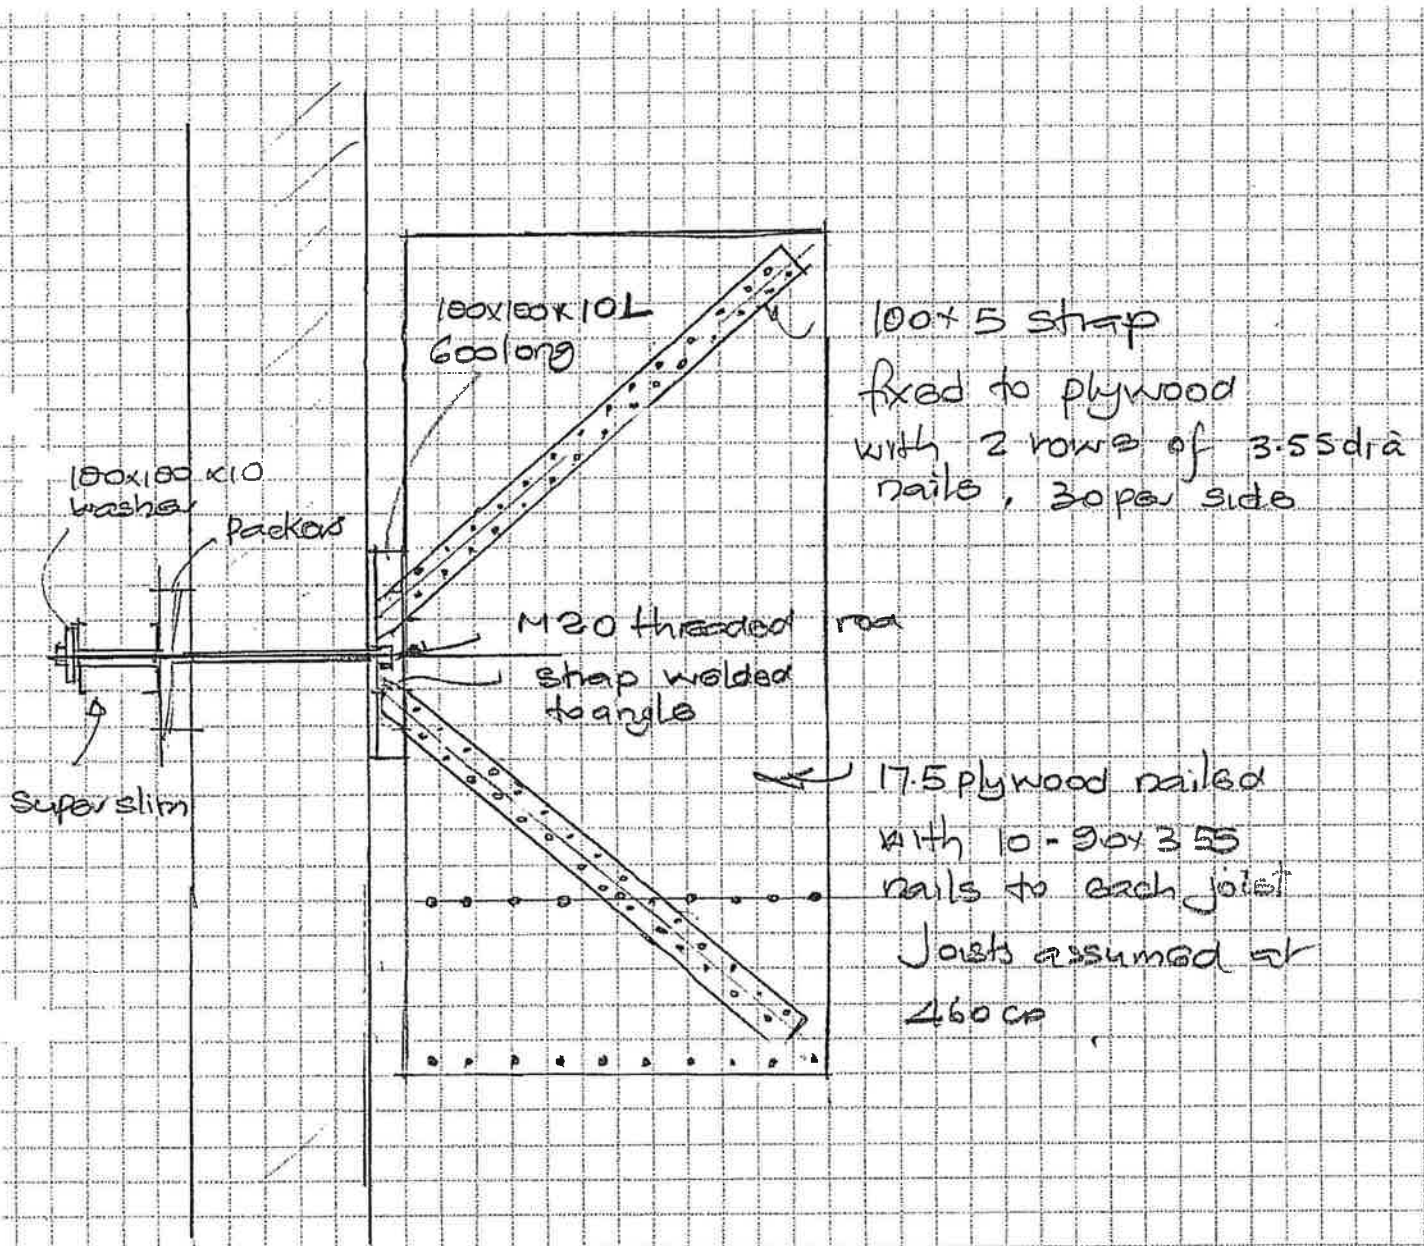 100x100x10L
600long
100x5 strap
fixed to plywood
with 2 rows of 3.55dia
nails, 30 per side
100x100x10
washer
Packers
M20 threaded rod
strap welded
to angle
Super slim
17.5 plywood nailed
with 10-90x3.55
nails to each joist
Joists assumed at
460 crs